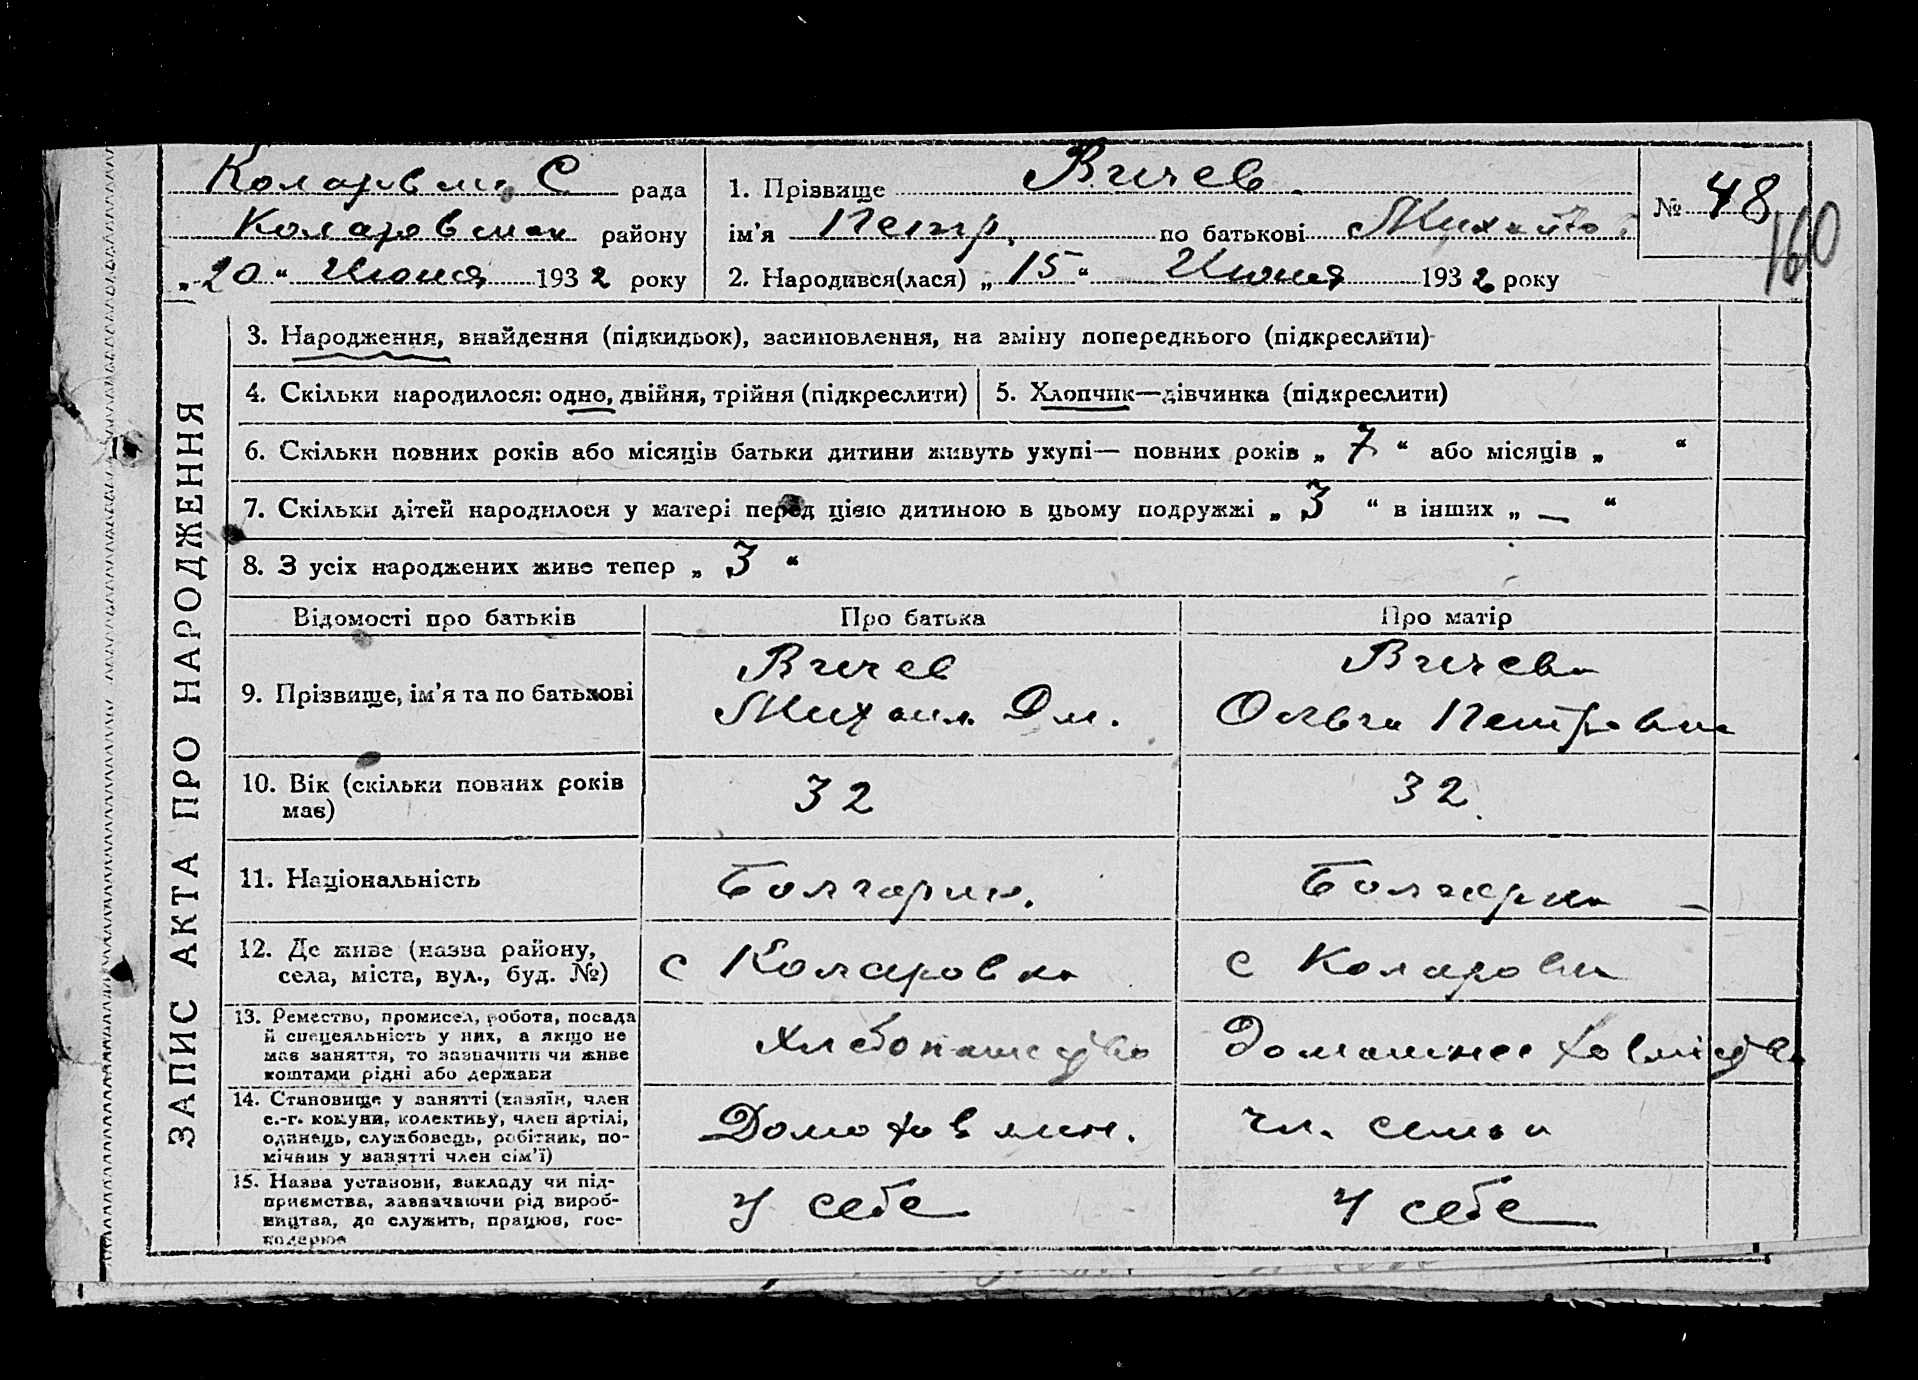 Коларовск С рада
Коларовском району
„20“ Июня 1932 року
1. Прізвище Вичев
ім’я Петр по батькові Михайло
2. Народився(лася) „15“ Июня 1932 року
№ 48
160
ЗАПИС АКТА ПРО НАРОДЖЕННЯ
3. Народження, знайдення (підкидьок), засиновлення, на зміну попереднього (підкреслити)
4. Скільки народилося: одно, двійня, трійня (підкреслити)
5. Хлопчик—дівчинка (підкреслити)
6. Скільки повних років або місяців батьки дитини живуть укупі— повних років „ 7 “ або місяців „ “
7. Скільки дітей народилося у матері перед цією дитиною в цьому подружжі „ 3 “ в інших „ — “
8. З усіх народжених живе тепер „ 3 “
Відомості про батьків
Про батька
Про матір
9. Прізвище, ім’я та по батькові
Вичев
Михаил Дм.
Вичева
Ольга Петровна
10. Вік (скільки повних років
має)
32
32
11. Національність
Болгарин.
Болгарка
12. Де живе (назва району,
села, міста, вул., буд. №)
с Коларовка
с Коларовка
13. Ремество, промисел, робота, посада
й спеціяльність у них, а якщо не
має заняття, то зазначити чи живе
коштами рідні або держави
Хлебопашество
Домашнее
14. Становище у занятті (хазяїн, член
с.-г. комуни, колективу, член артілі,
одинець, службовець, робітник, по-
мічник у занятті член сім’ї)
Домохозяин.
чл. семьи
15. Назва установи, закладу чи під-
приємства, зазначаючи рід вироб-
ництва, де служить, працює, гос-
подарює
У себе
У себе